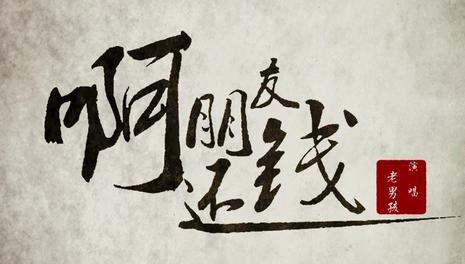 啊朋友
还钱
演唱
老男孩